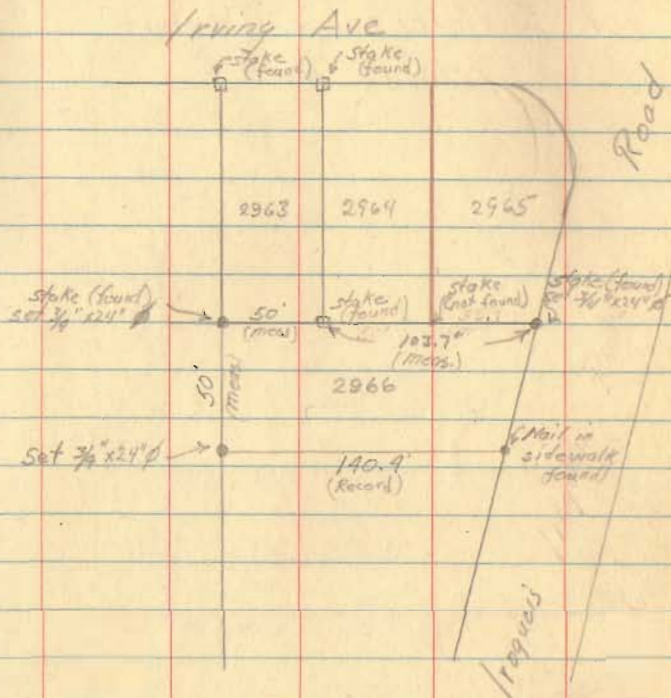 Irving Ave
stake
(found)
stake
(found)
Road
2963
2964
2965
stake (found)
set 3/4" x 24" ϕ
50'
(meas)
stake
(found)
stake
(not found)
stake (found)
set 3/4" x 24" ϕ
103.7'
(meas.)
50'
(meas)
2966
Set 3/4" x 24" ϕ
140.4'
(Record)
Nail in
sidewalk
found
Iroquois